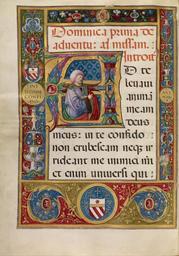 Dominica prima de
aduentu: ad missam.
Introit
D te
leuaui
anima
meam
deus
meus: in te confido
non erubescam neq; ir
rideant me inimici mi
et enim uniuersi qui :